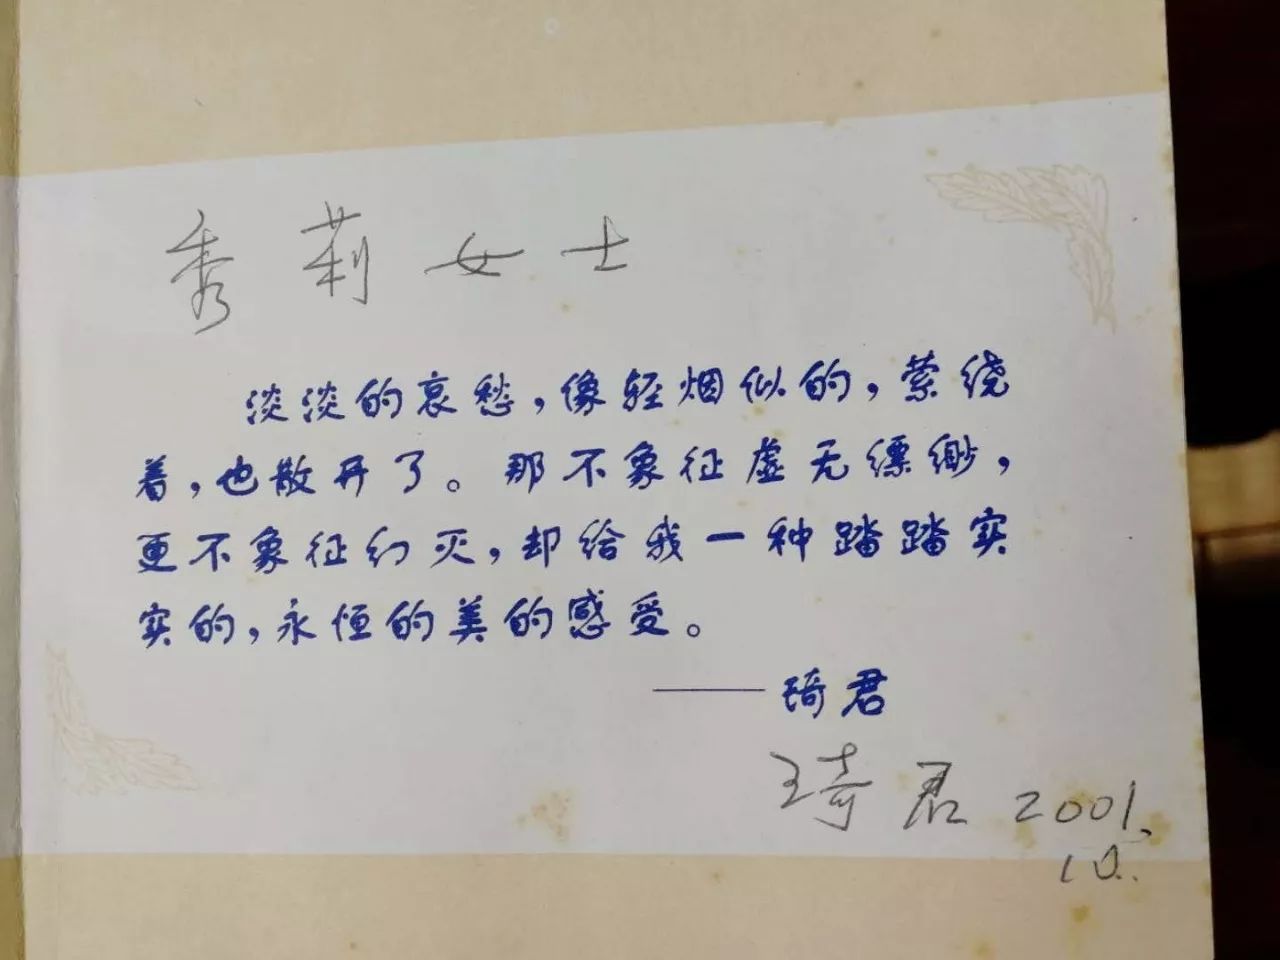 秀莉女士
淡淡的哀愁，像轻烟似的，萦绕
着，也散开了。那不象征虚无缥缈，
更不象征幻灭，却给我一种踏踏实
实的，永恒的美的感受。
——琦君
琦君 2001.
10.